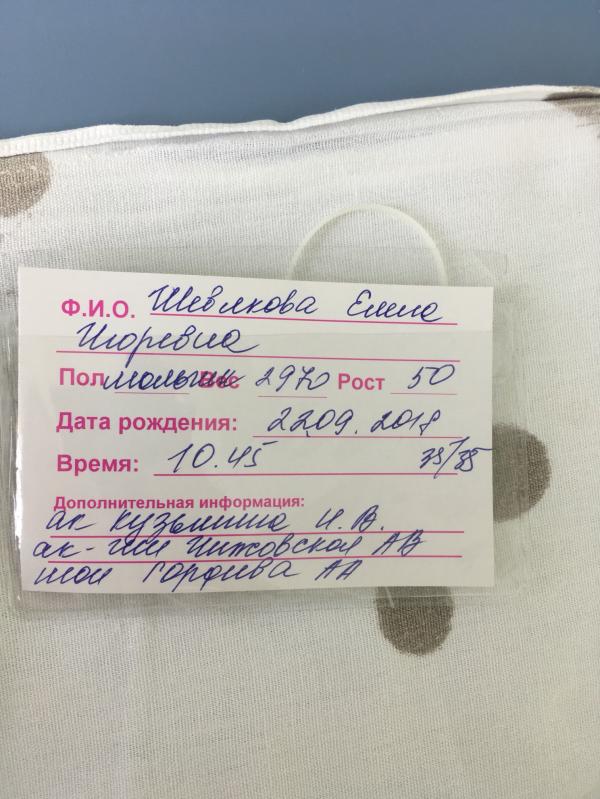 Ф.И.О. Шевлкова Елена
Игоревна
Пол мальчик Вес 2970 Рост 50
Дата рождения: 22.09.2018
Время: 10.45 35/35
Дополнительная информация:
ак Кузьмина И.В.
ак-гин Чижовская АВ
АА